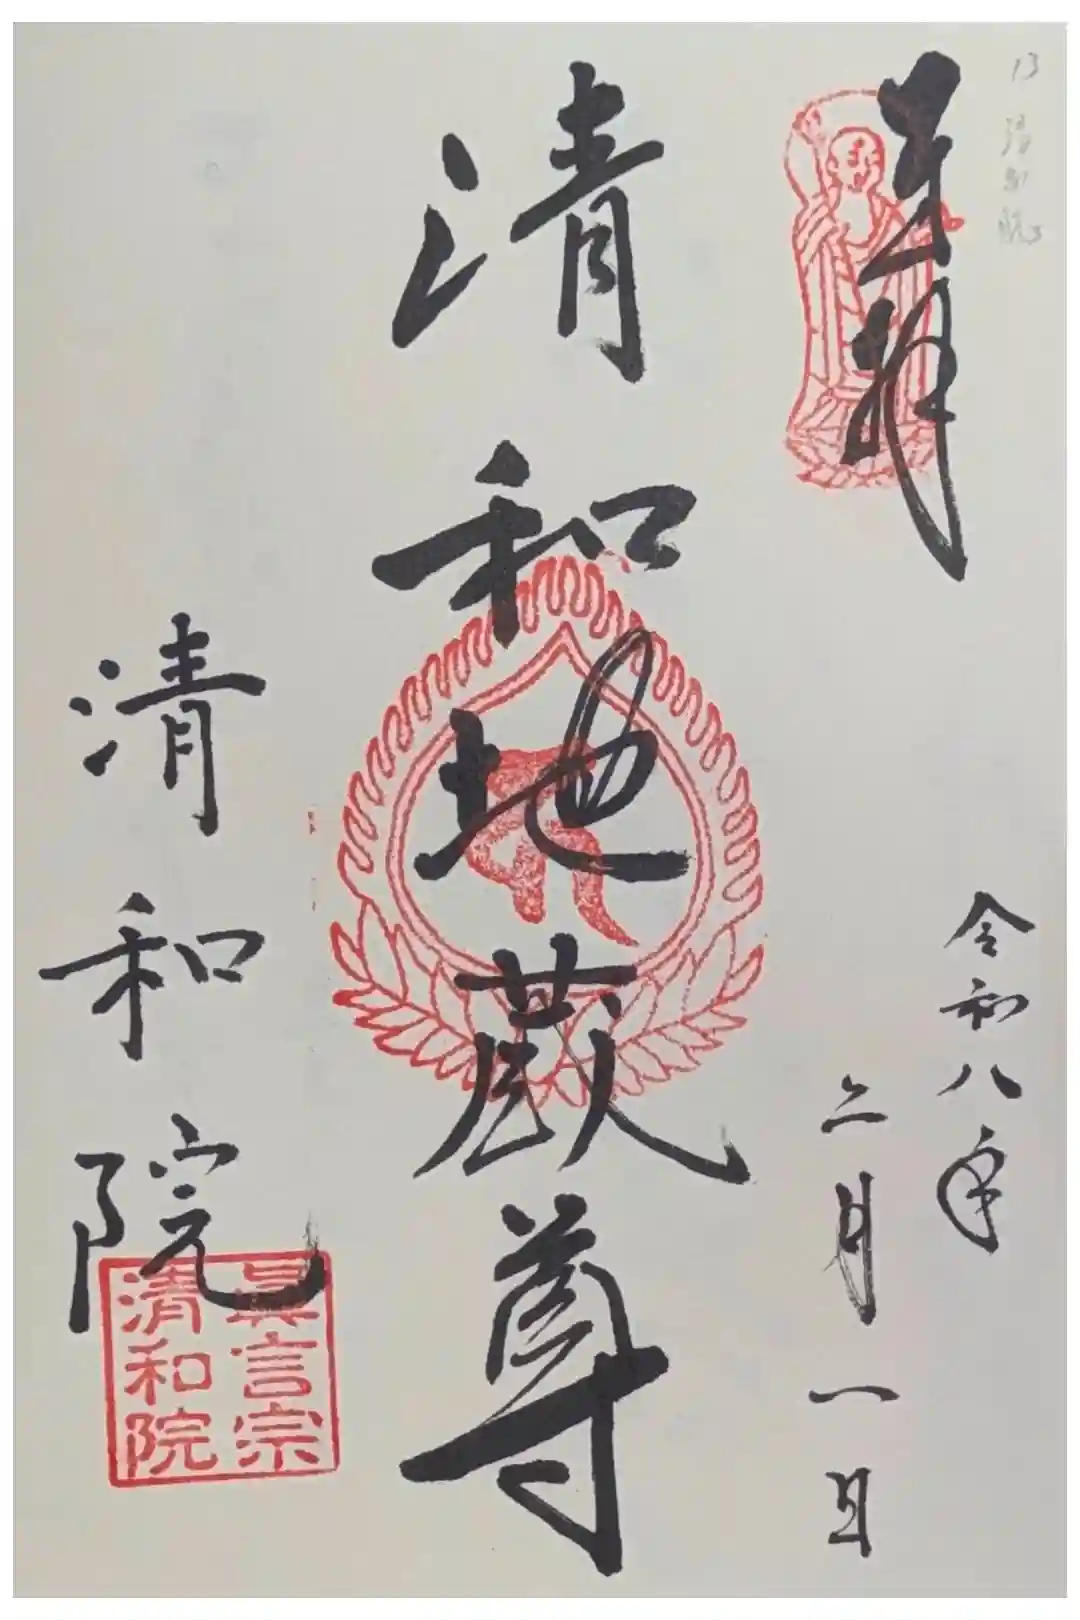 奉拝
令和八年
二月一日
清和地蔵尊
清和院
眞言宗
清和院
13
清和院